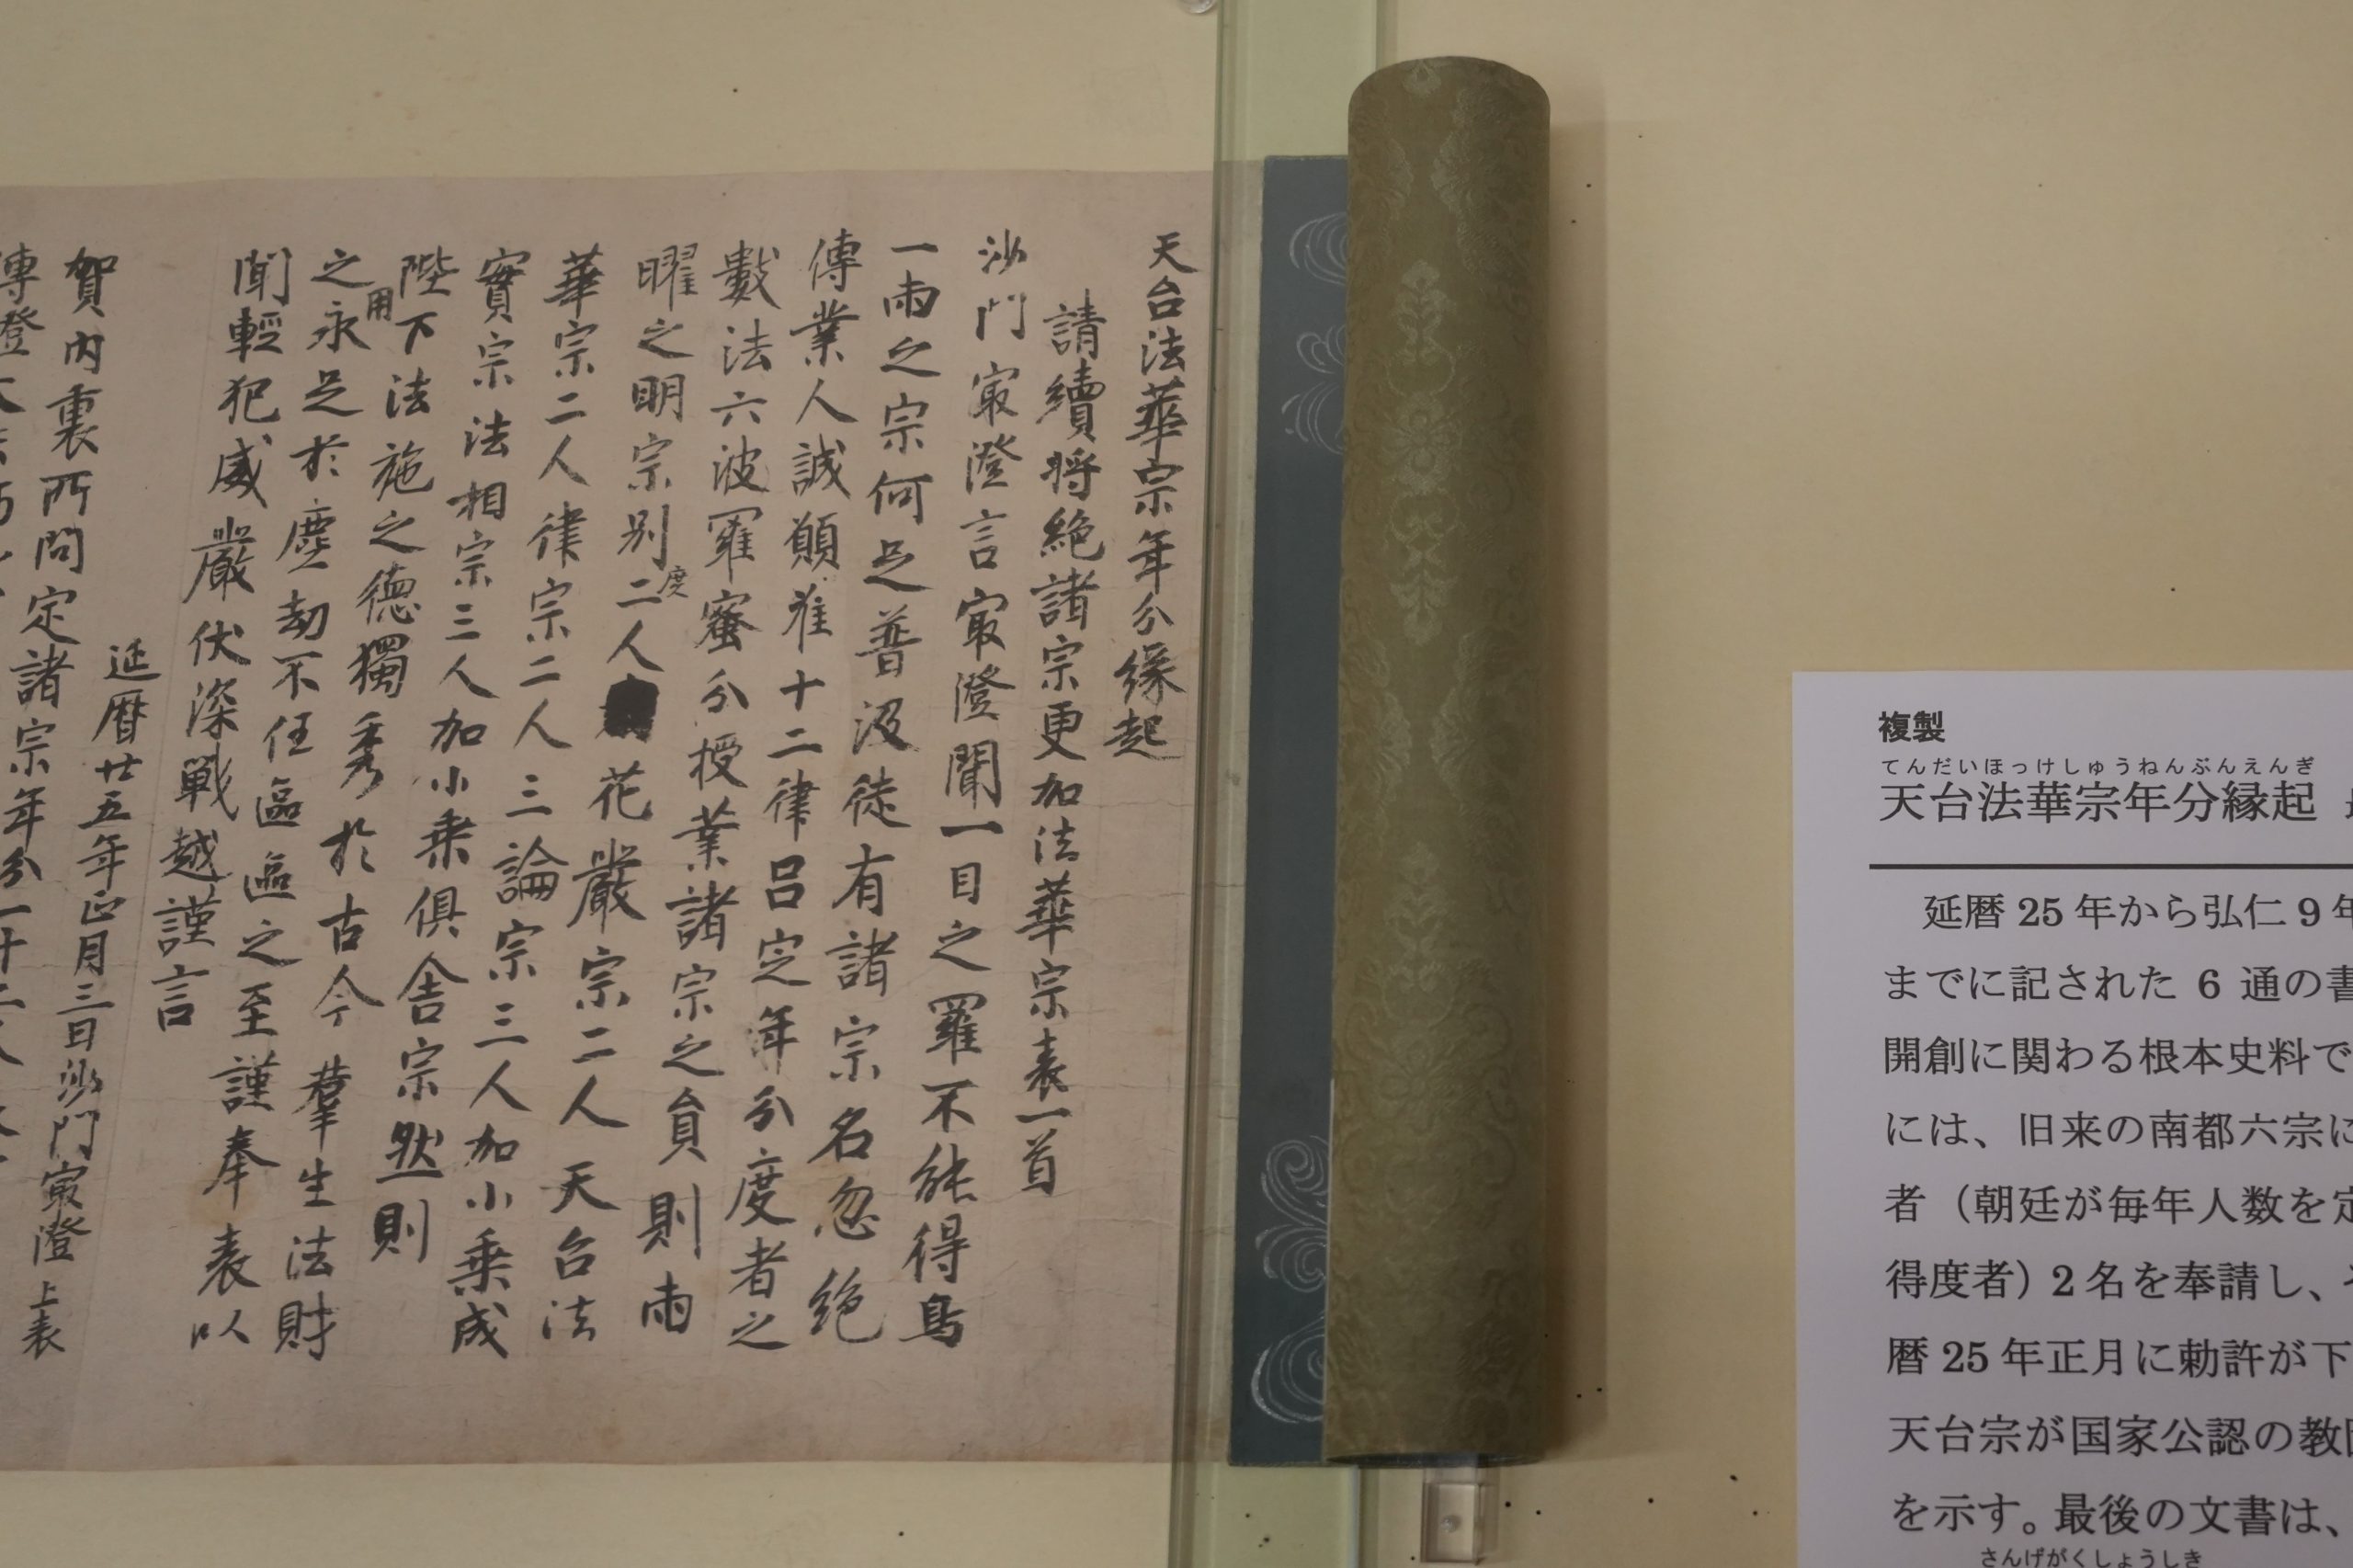 天台法華宗年分縁起
請續將絶諸宗更加法華宗表一首
沙門冣澄言冣澄聞一目之羅不能得鳥
一兩之宗何足普汲徒有諸宗名忽絶
傳業人誠願准十二律呂定年分度者之
數法六波羅蜜分授業諸宗之員則兩
曜之明宗別度二人花嚴宗二人天台法
華宗二人律宗二人三論宗三人加小乗成
實宗法相宗三人加小乗俱舎宗然則
陛下法施之德獨秀於古今羣生法財
之用永足於塵劫不任區區之至謹奉表以
聞輕犯威嚴伏深戰越謹言
延暦廿五年正月三日沙門冣澄上表
賀内裏所問定諸宗年分一十二人
複製
てんだいほっけしゅうねんぶんえんぎ
天台法華宗年分縁起
延暦 25 年から弘仁 9 年
までに記された 6 通の書
開創に関わる根本史料で
には、旧来の南都六宗に
者（朝廷が毎年人数を定
得度者）2 名を奉請し、そ
暦 25 年正月に勅許が下
天台宗が国家公認の教団
を示す。最後の文書は、
さんげがくしょうしき